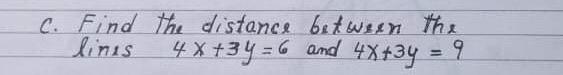 C. Find the distance between the
lines 4x+3y=6 and 4x+3y = 9